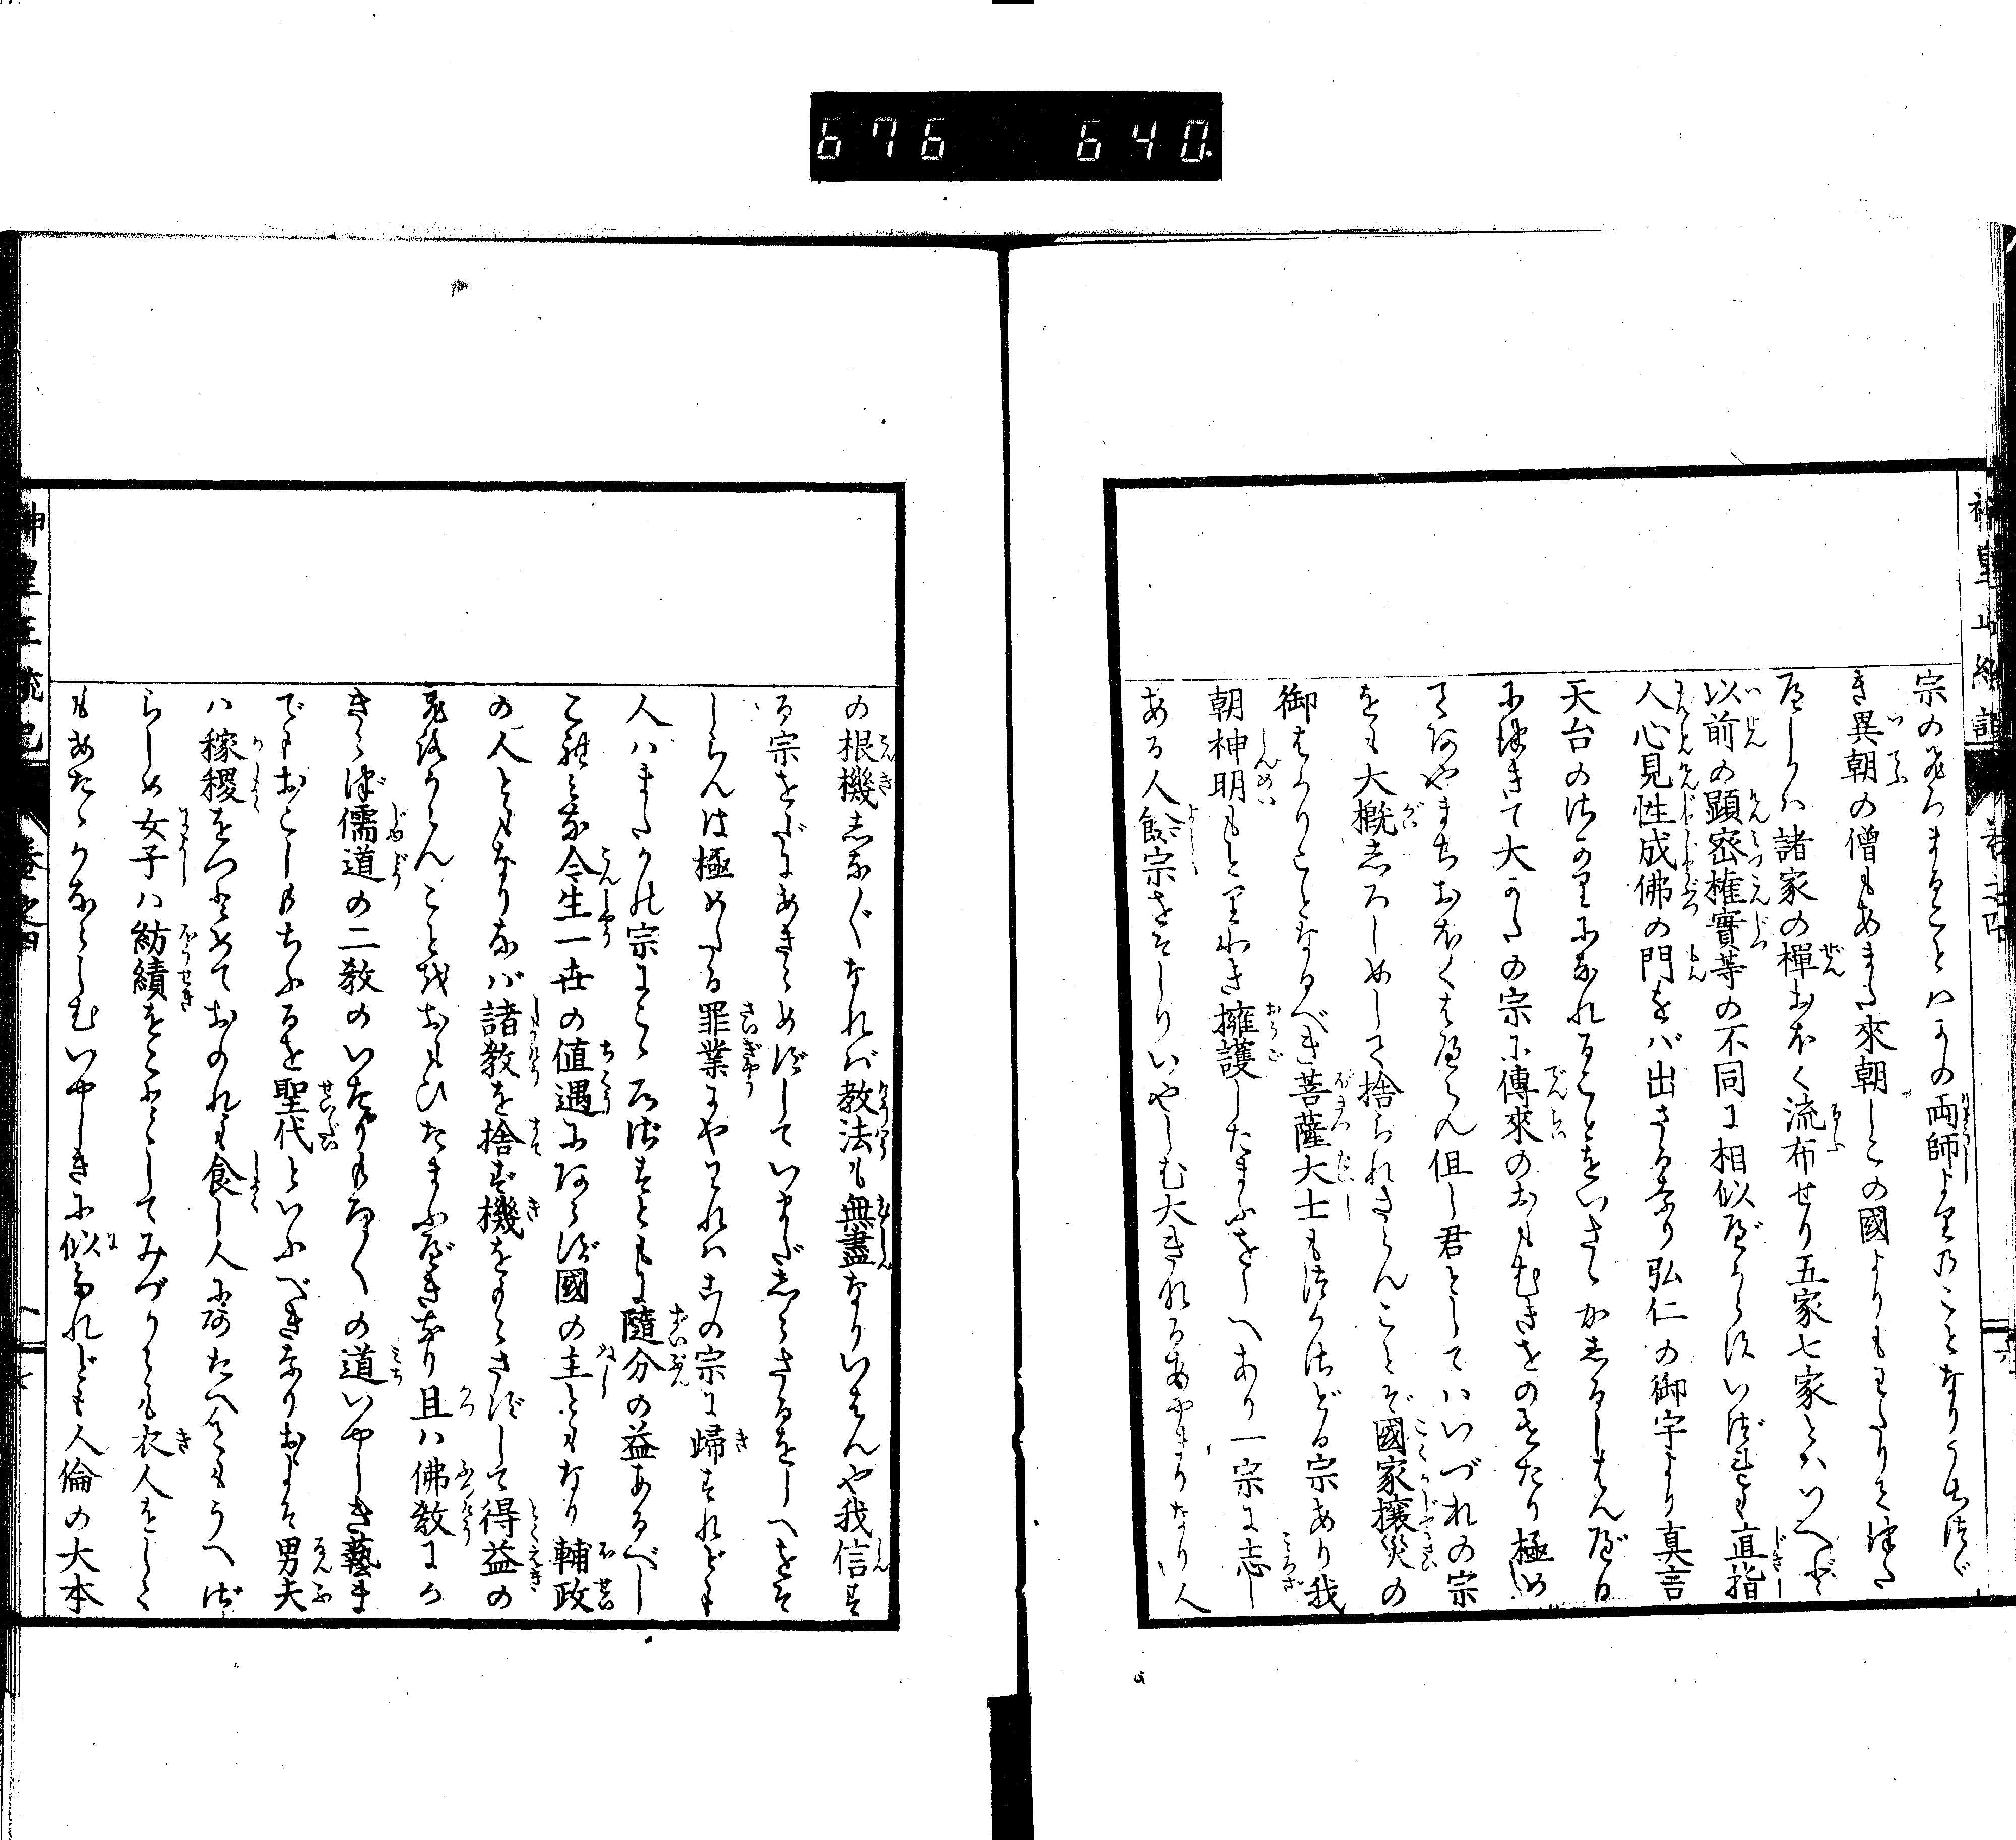 676 640.
宗のひろまることはかの両師よりのことなりうちつゞ
き異朝の僧もあまた來朝しこの國よりもわたりてつた
へしかハ諸家の禪おほく流布せり五家七家とハいへど
以前の顕密権實等の不同に相似べからすいづれも直指
人心見性成佛の門をバ出さるなり弘仁の御宇より真言
天台のさかりになれることをいさゝかしるしはんべる
につきて大かたの宗に傳來のおもむきをのせたり極め
てあやまちおほくはべらん但し君としてハいづれの宗
をも大槪しろしめして捨られさらんことぞ國家攘災の
御はかりことなるべき菩薩大士もつかさどる宗あり我
朝神明もとりわき擁護したまふをしへあり一宗に志し
ある人餘宗をそしりいやしむ大きなるあやまりなり人
の根機しな〴〵なれバ教法も無盡なりいはんや我信す
る宗をだにあきらめずしていまだしらさるをしへをそ
しらんは極めたる罪業にやわれハこの宗に歸すれども
人ハまたかれ宗にこゝろざすともに隨分の益あるべし
これみな今生一世の値遇にあらず國の主ともなり輔政
の人ともなりなバ諸教を捨ず機をもらさずして得益の
ひろからんことをおもひたまふべきなり且ハ佛教にか
きらず儒道の二教のいたりもろ〳〵の道いやしき藝ま
でもおこしもちふるを聖代といふべきなりおよそ男夫
ハ稼穡をつとめておのれも食し人にあたへてもうへず
らしめ女子ハ紡績をことゝしてみづからも衣人をして
もあたゝかならしむいやしきに似なれども人倫の大本
神皇正統記
卷之四